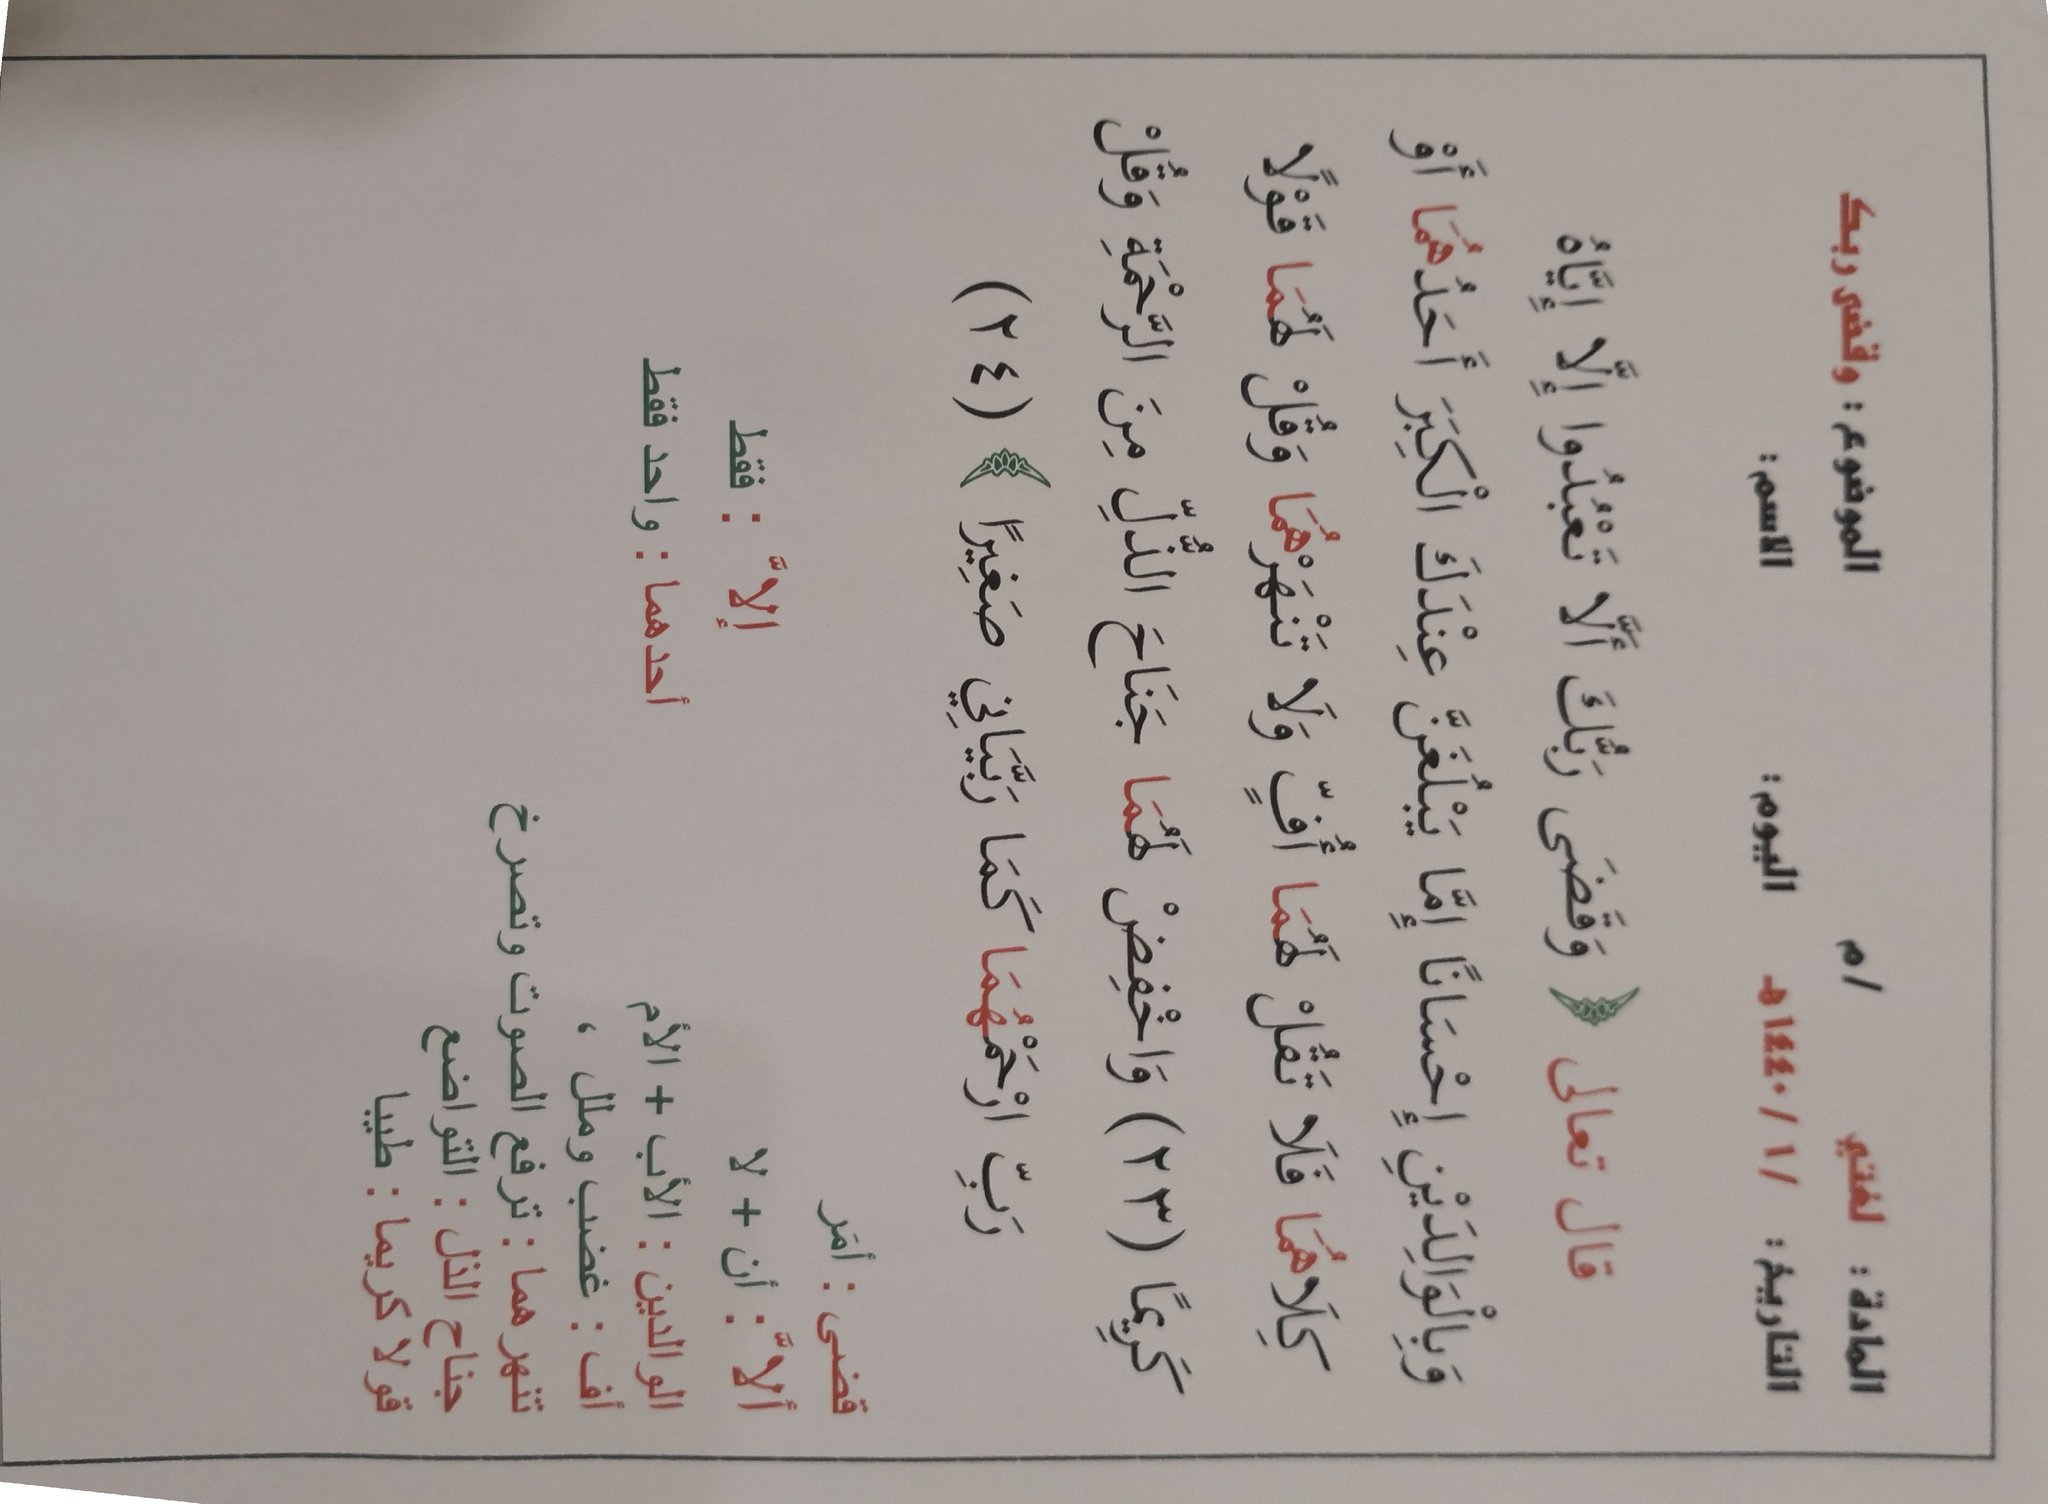 المادة : لغتي /م الموضوع : وقضى ربك
التاريخ : /١ /١٤٤٠هـ اليوم : الاسم :
قال تعالى ﴿ وَقَضَى رَبُّكَ أَلَّا تَعْبُدُوا إِلَّا إِيَّاهُ
وَبِالْوَالِدَيْنِ إِحْسَانًا إِمَّا يَبْلُغَنَّ عِنْدَكَ الْكِبَرَ أَحَدُهُمَا أَوْ
كِلَاهُمَا فَلَا تَقُلْ لَهُمَا أُفٍّ وَلَا تَنْهَرْهُمَا وَقُلْ لَهُمَا قَوْلًا
كَرِيمًا (٢٣) وَاخْفِضْ لَهُمَا جَنَاحَ الذُّلِّ مِنَ الرَّحْمَةِ وَقُلْ
رَبِّ ارْحَمْهُمَا كَمَا رَبَّيَانِي صَغِيرًا ﴾ (٢٤)
قضى : أمَر
ألاَّ : أن + لا إلاَّ : فقط
الوالدين : الأب + الأم أحدهما : واحد فقط
أف : غضب وملل ،
تنهرهما : ترفع الصوت وتصرخ
جناح الذل : التواضع
قولا كريما : طيبا